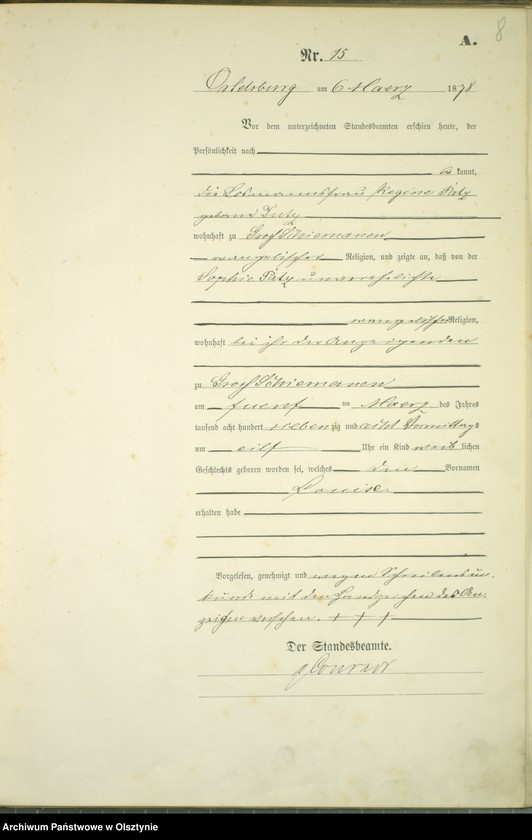 8
A.
Nr. 15
Ortelsburg am 6 Maerz 1878
Vor dem unterzeichneten Standesbeamten erschien heute, der
Persönlichkeit nach
be kannt,
die Losmannsfrau Regine
geborne
wohnhaft zu Groß Schiemanen
evangelischer Religion, und zeigte an, daß von der
Sophie unverehelichte
evangelischer Religion,
wohnhaft bei ihr der Anzeigenden
zu Groß Schiemanen
am fuenf ten Maerz des Jahres
tausend acht hundert sieben zig und acht Vormittags
um eilf Uhr ein Kind weib lichen
Geschlechts geboren worden sei, welches den Vornamen
Louise
erhalten habe
Vorgelesen, genehmigt und wegen Schreibensun-
kunde mit den Handzeichen des An-
zeigers versehen. + + +
Der Standesbeamte.
Conrad
Archiwum Państwowe w Olsztynie